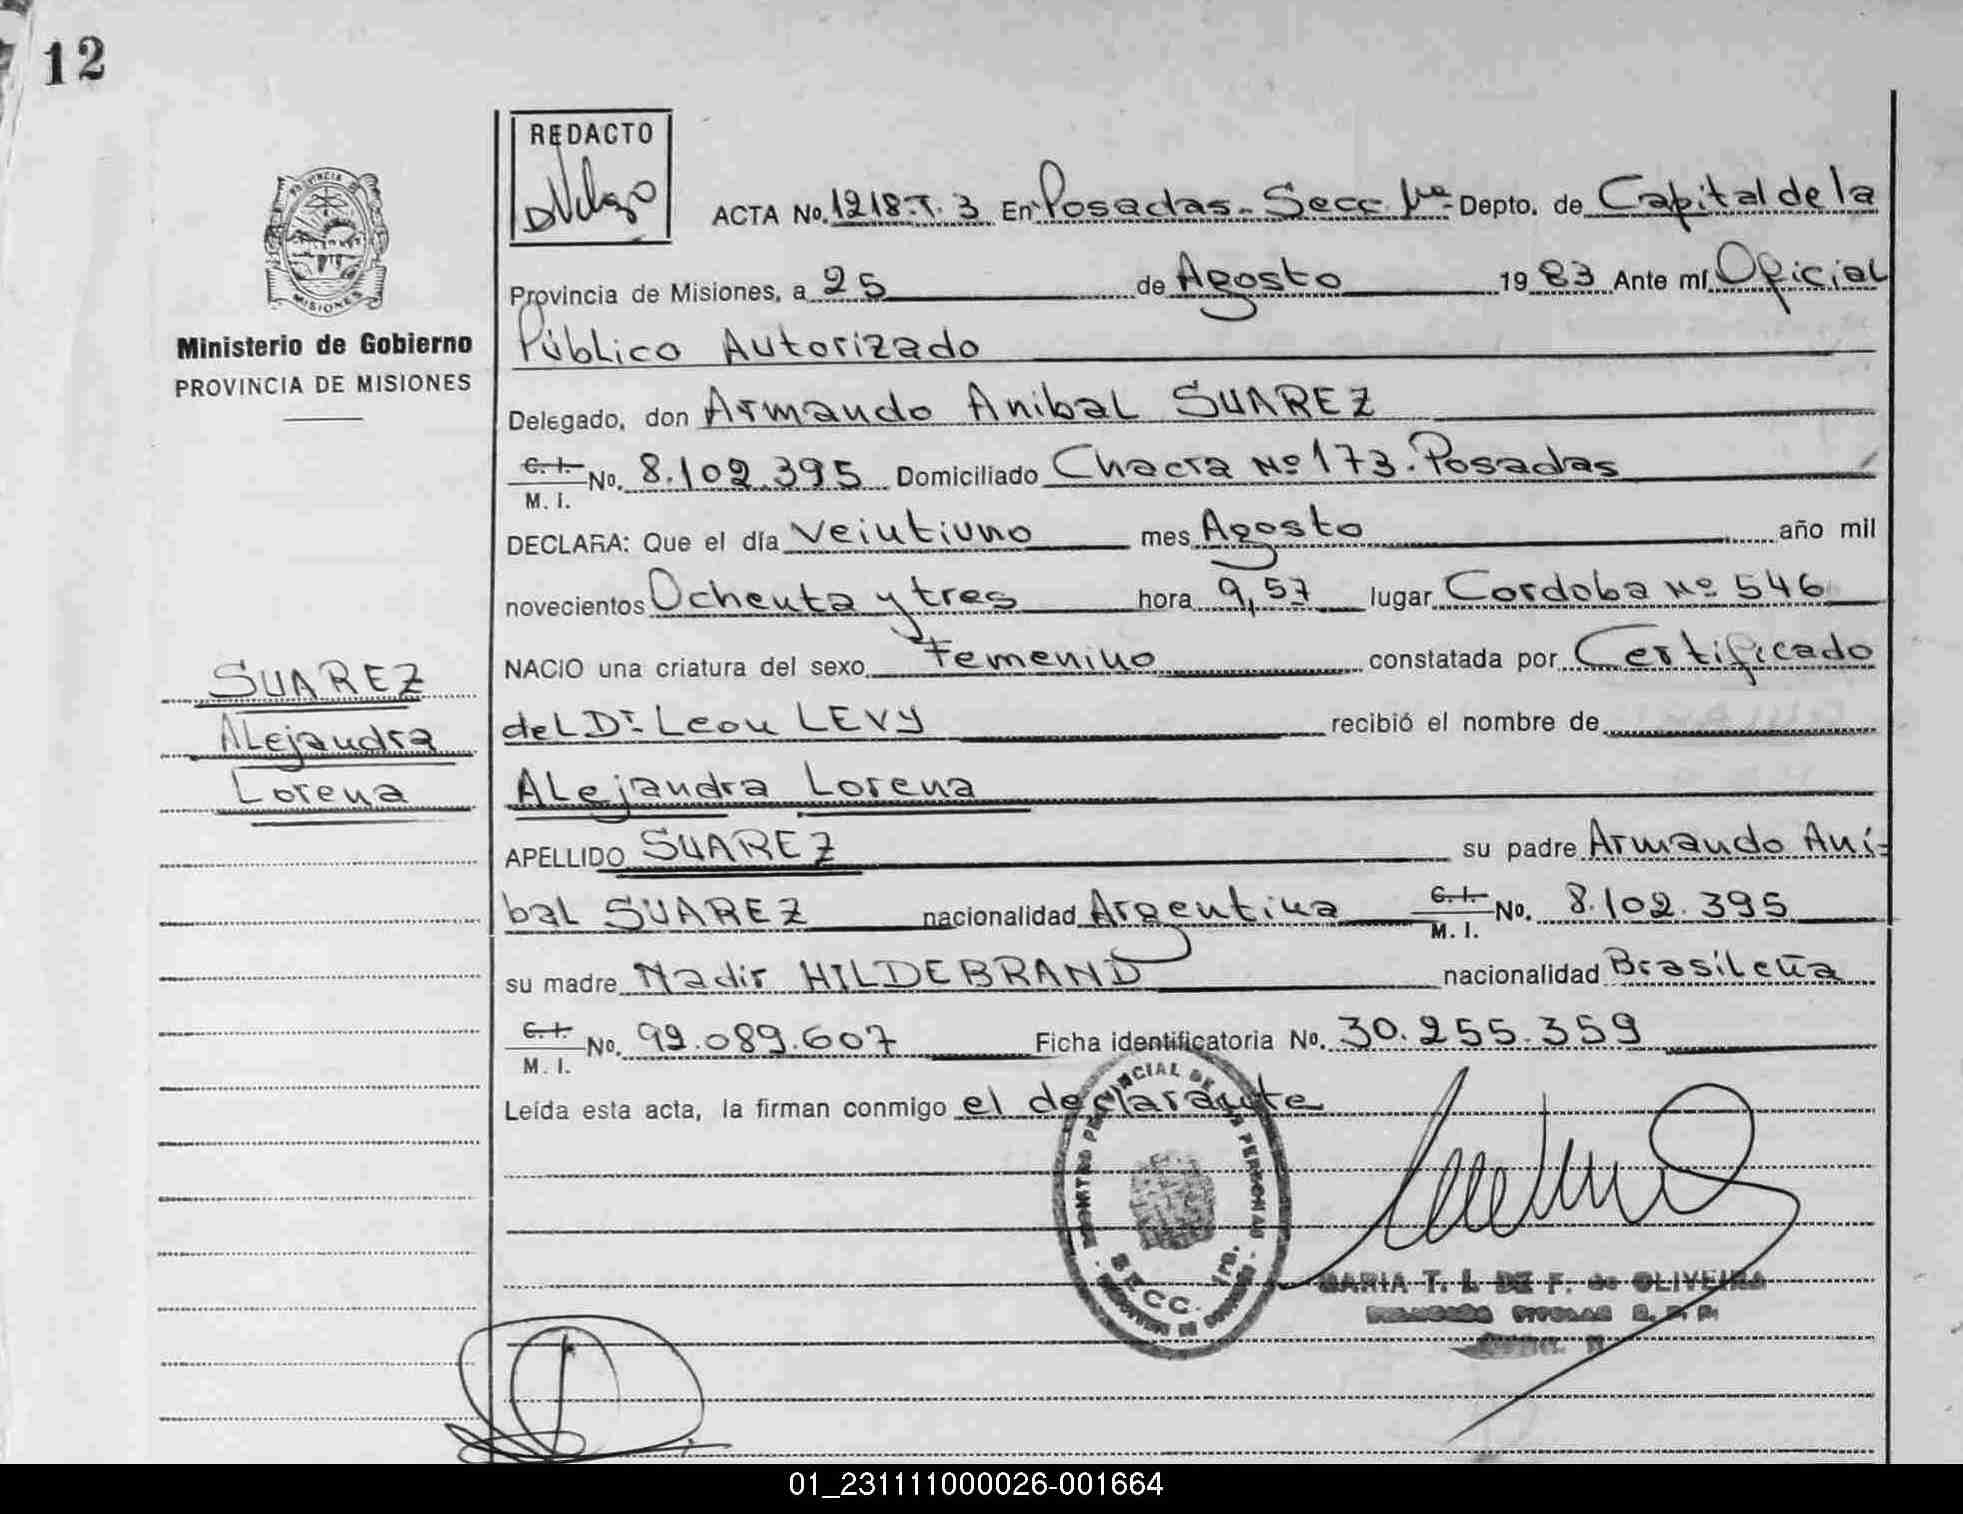 12
REDACTO
ACTA No. 1218. T. 3 En Posadas - Secc 1ra - Depto. de Capital de la
PROVINCIA DE
MISIONES
Provincia de Misiones, a 25 de Agosto 1983 Ante mí Oficial
Ministerio de Gobierno
PROVINCIA DE MISIONES
Público Autorizado
Delegado, don Armando Anibal SUAREZ
C. I.
M. I. No. 8.102.395 Domiciliado Chacra Nº 173. Posadas
DECLARA: Que el día Veintiuno mes Agosto año mil
novecientos Ochenta y tres hora 9,57 lugar Cordoba Nº 546
NACIO una criatura del sexo Femenino constatada por Certificado
SUAREZ
Alejandra
Lorena
del Dr. Leon LEVY recibió el nombre de
Alejandra Lorena
APELLIDO SUAREZ su padre Armando Aní-
bal SUAREZ nacionalidad Argentina C. I.
M. I. No. 8.102.395
su madre Nadir HILDEBRAND nacionalidad Brasileña
C. I.
M. I. No. 92.089.607 Ficha identificatoria No. 30.255.359
Leída esta acta, la firman conmigo el declarante
SECC. 1ra.
MARIA T. L. DE F. de OLIVEIRA
01_231111000026-001664